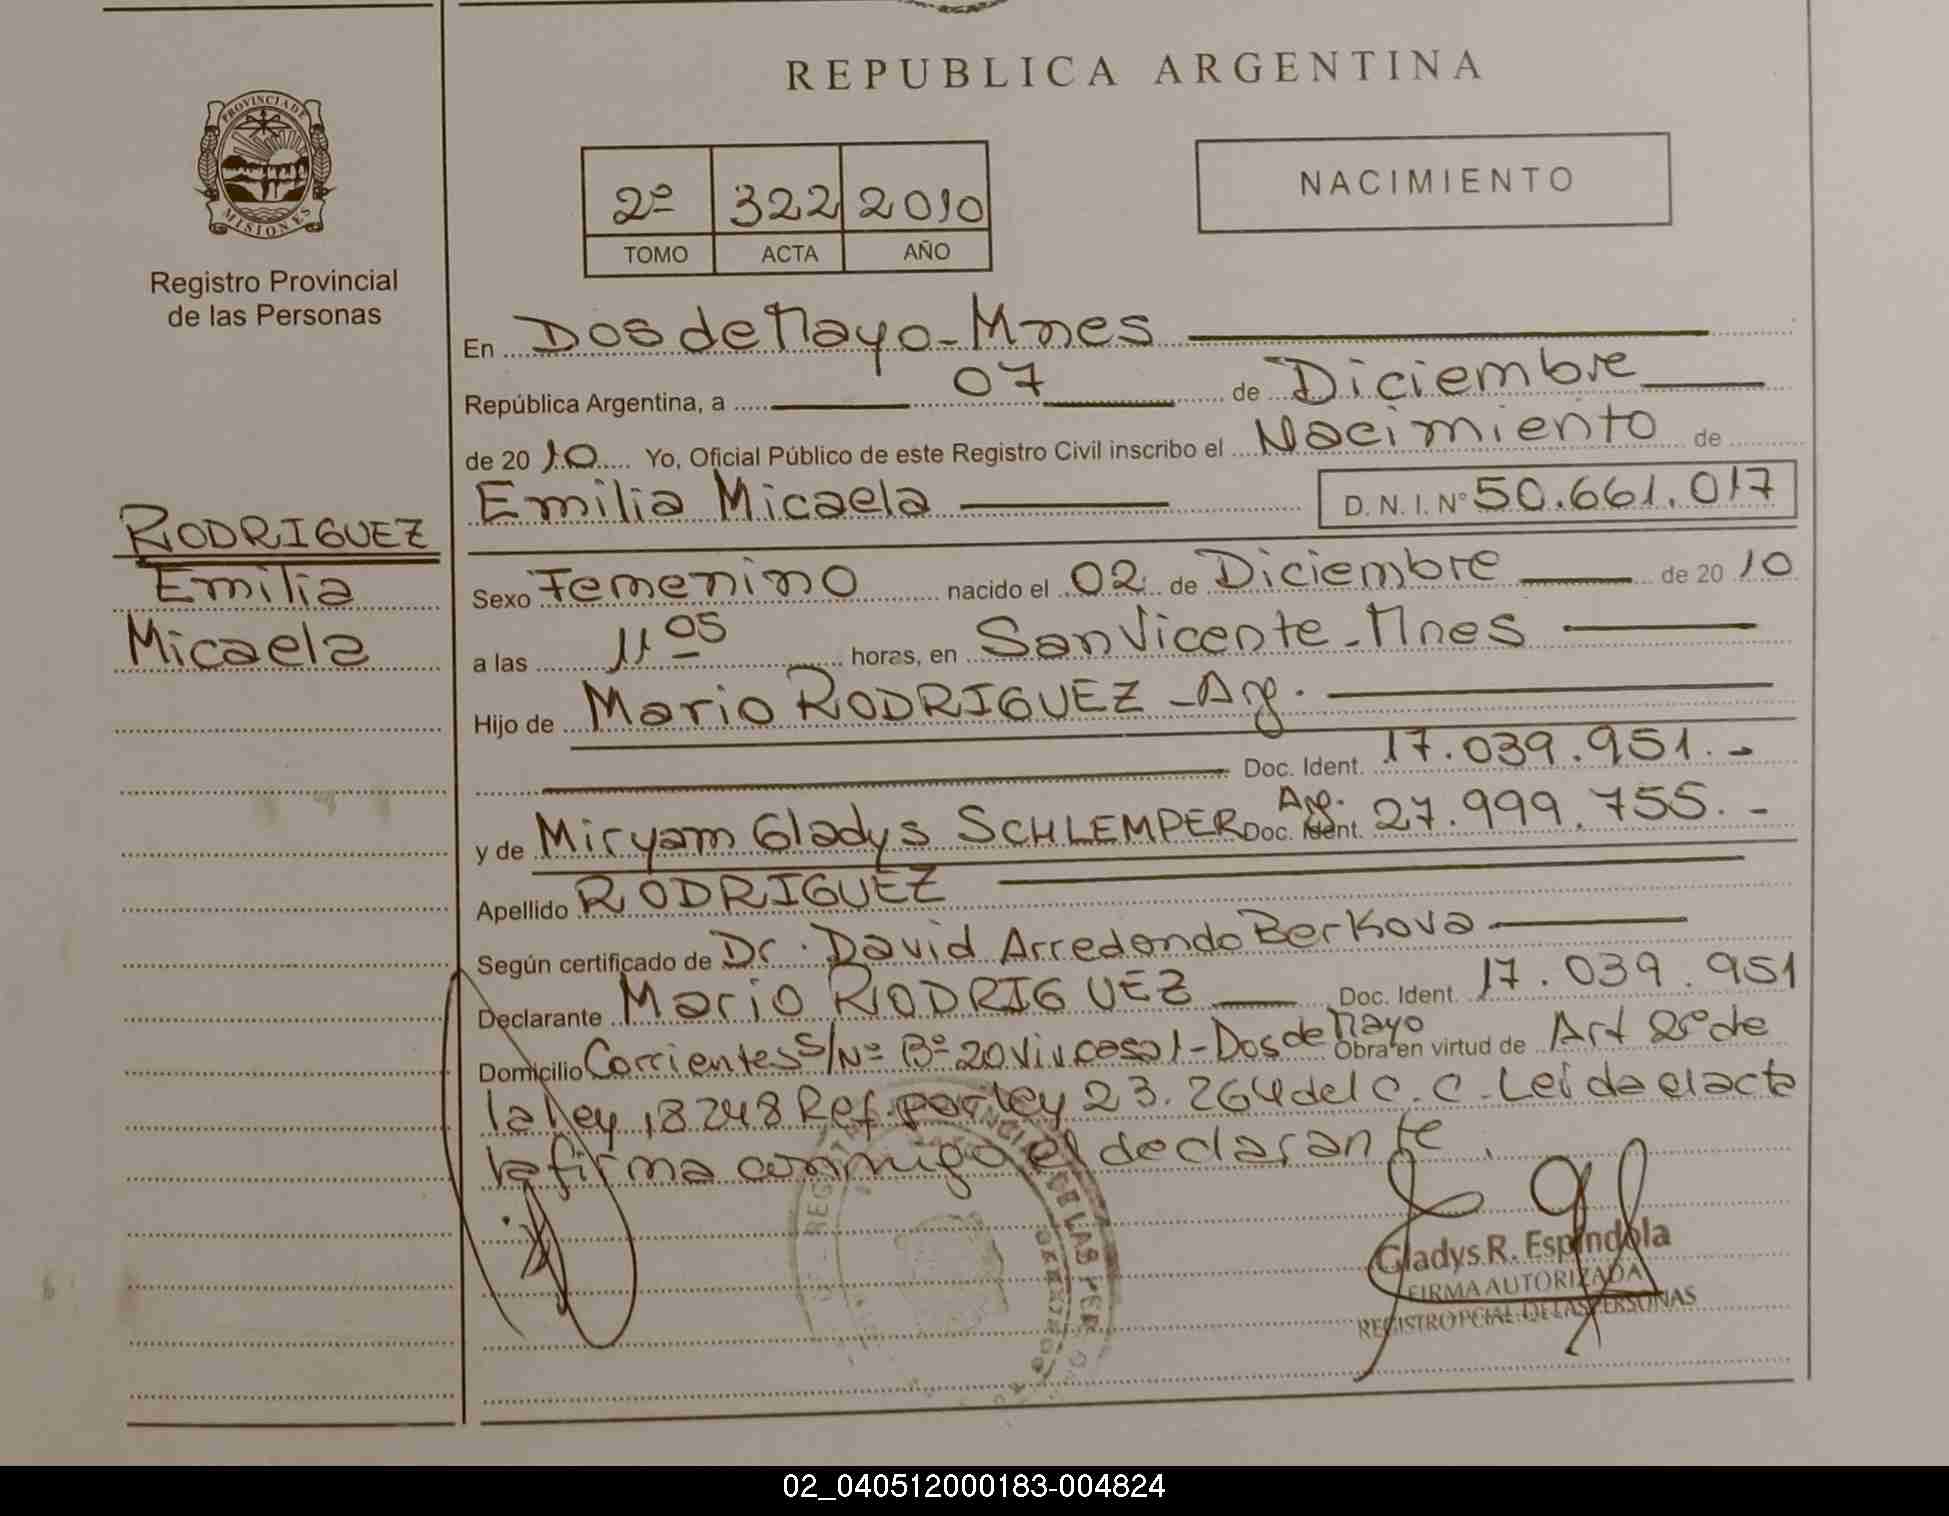 REPUBLICA ARGENTINA
PROVINCIA DE
MISIONES
Registro Provincial
de las Personas
2º 322 2010
TOMO ACTA AÑO
NACIMIENTO
RODRIGUEZ
Emilia
Micaela
En Dos de Mayo - Mnes
República Argentina, a 07 de Diciembre
de 2010 Yo, Oficial Público de este Registro Civil inscribo el Nacimiento de
Emilia Micaela D. N. I. Nº 50.661.017
Sexo Femenino nacido el 02 de Diciembre de 2010
a las 11 05 horas, en San Vicente - Mnes
Hijo de Mario RODRIGUEZ - Arg.
Doc. Ident. 17.039.951.-
y de Miryam Gladys SCHLEMPER Arg. Doc. Ident. 27.999.755.-
Apellido RODRIGUEZ
Según certificado de Dr. David Arredondo Berkova
Declarante Mario RODRIGUEZ Doc. Ident. 17.039.951
Domicilio Corrientes S/Nº Bº 20 Viv. casa 1 - Dos de Mayo Obra en virtud de Art 2º de
la ley 18248 Ref. por ley 23.264 del C.C. Leida el acta
la firma conmigo el declarante.
Gladys R. Espindola
FIRMA AUTORIZADA
REGISTRO PCIAL. DE LAS PERSONAS
02_040512000183-004824